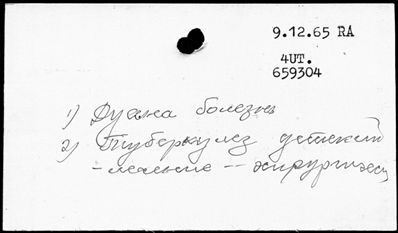 9.12.65 RA
4UT.
659304
1) Дуана болезнь
2) Туберкулез детский
- лечение -- хирургическ